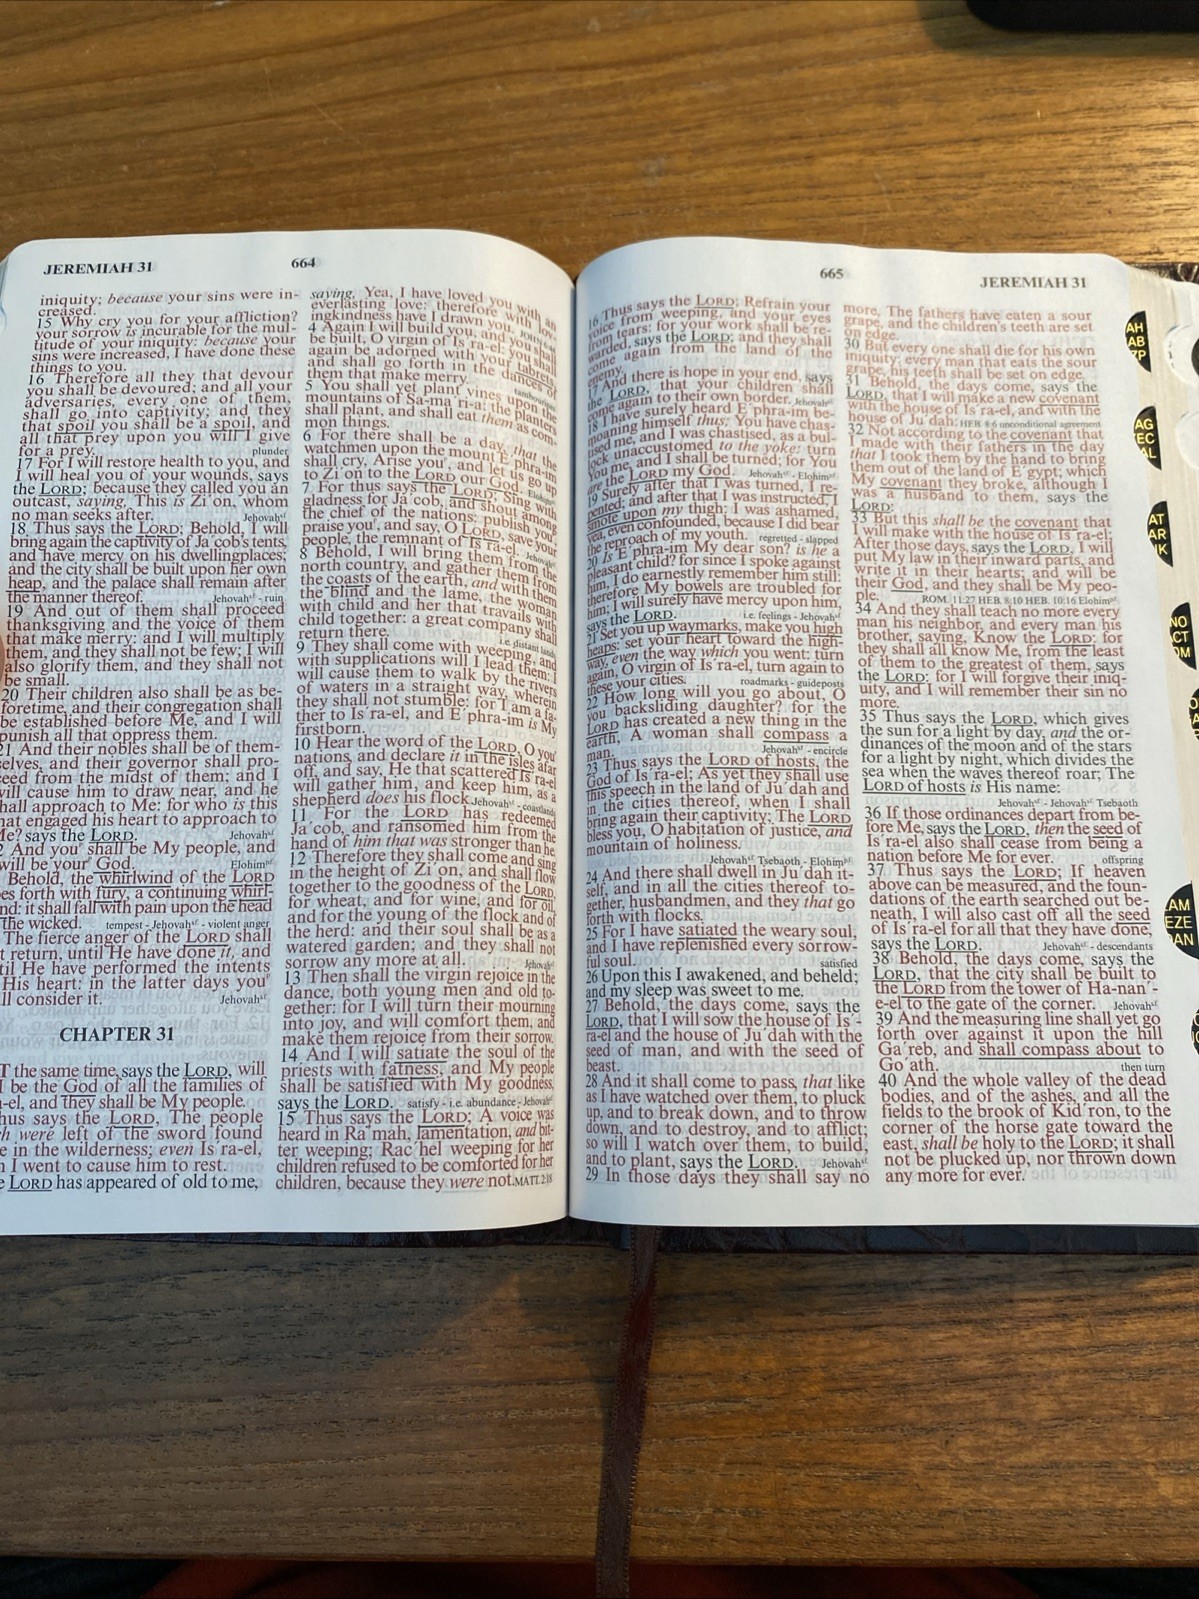 JEREMIAH 31
664
iniquity; because your sins were in-
creased.
15 Why cry you for your affliction?
your sorrow is incurable for the mul-
titude of your iniquity: because your
sins were increased, I have done these
things to you.
16 Therefore all they that devour
you shall be devoured; and all your
adversaries, every one of them,
shall go into captivity; and they
that spoil you shall be a spoil, and
all that prey upon you will I give
for a prey. plunder
17 For I will restore health to you, and
I will heal you of your wounds, says
the LORD; because they called you an
outcast, saying, This is Zi'on, whom
no man seeks after. Jehovah
18 Thus says the LORD; Behold, I will
bring again the captivity of Ja'cob's tents,
and have mercy on his dwellingplaces;
and the city shall be built upon her own
heap, and the palace shall remain after
the manner thereof. Jehovah - ruin
19 And out of them shall proceed
thanksgiving and the voice of them
that make merry: and I will multiply
them, and they shall not be few; I will
also glorify them, and they shall not
be small.
20 Their children also shall be as be-
foretime, and their congregation shall
be established before Me, and I will
punish all that oppress them.
21 And their nobles shall be of them-
selves, and their governor shall pro-
ceed from the midst of them; and I
will cause him to draw near, and he
shall approach to Me: for who is this
that engaged his heart to approach to
Me? says the LORD. Jehovah
And you shall be My people, and
will be your God. Elohim
Behold, the whirlwind of the LORD
es forth with fury, a continuing whirl-
nd: it shall fall with pain upon the head
the wicked. tempest - Jehovah - violent anger
The fierce anger of the LORD shall
t return, until He have performed the intents
His heart: in the latter days you
ll consider it. Jehovah
CHAPTER 31
T the same time, says the LORD, will
I be the God of all the families of
-el, and they shall be My people.
hus says the LORD, The people
h were left of the sword found
e in the wilderness; even Is'ra-el,
I went to cause him to rest.
LORD has appeared of old to me,
saying, Yea, I have loved you with an
everlasting love: therefore with lov-
ingkindness have I drawn you.
4 Again I will build you, and you shall
be built, O virgin of Is'ra-el: you shall
again be adorned with your tabrets,
and shall go forth in the dances of
them that make merry.
5 You shall yet plant vines upon the
mountains of Sa-ma'ri-a: the planters
shall plant, and shall eat them as com-
mon things.
6 For there shall be a day, that the
watchmen upon the mount E'phra-im
shall cry, Arise you, and let us go up
to Zi'on to the LORD our God.
7 For thus says the LORD; Sing with
gladness for Ja'cob, and shout among
the chief of the nations: publish you,
praise you, and say, O LORD, save your
people, the remnant of Is'ra-el. Jehovah
8 Behold, I will bring them from the
north country, and gather them from
the coasts of the earth, and with them
the blind and the lame, the woman
with child and her that travails with
child together: a great company shall
return there. i.e. distant lands
9 They shall come with weeping, and
with supplications will I lead them: I
will cause them to walk by the rivers
of waters in a straight way, wherein
they shall not stumble: for I am a fa-
ther to Is'ra-el, and E'phra-im is My
firstborn.
10 Hear the word of the LORD, O you
nations, and declare it in the isles afar
off, and say, He that scattered Is'ra-el
will gather him, and keep him, as a
shepherd does his flock. Jehovah - coastlands
11 For the LORD has redeemed
Ja'cob, and ransomed him from the
hand of him that was stronger than he.
12 Therefore they shall come and sing
in the height of Zi'on, and shall flow
together to the goodness of the LORD,
for wheat, and for wine, and for oil,
and for the young of the flock and of
the herd: and their soul shall be as a
watered garden; and they shall not
sorrow any more at all. Jehovah
13 Then shall the virgin rejoice in the
dance, both young men and old to-
gether: for I will turn their mourning
into joy, and will comfort them, and
make them rejoice from their sorrow.
14 And I will satiate the soul of the
priests with fatness, and My people
shall be satisfied with My goodness,
says the LORD. satisfy - i.e. abundance - Jehovah
15 Thus says the LORD; A voice was
heard in Ra'mah, lamentation, and bit-
ter weeping; Rac'hel weeping for her
children refused to be comforted for her
children, because they were not. MATT. 2:18
665
JEREMIAH 31
16 Thus says the LORD; Refrain your
voice from weeping, and your eyes
from tears: for your work shall be re-
warded, says the LORD; and they shall
come again from the land of the
enemy.
17 And there is hope in your end, says
the LORD, that your children shall
come again to their own border. Jehovah
18 I have surely heard E'phra-im be-
moaning himself thus; You have chas-
tised me, and I was chastised, as a bul-
lock unaccustomed to the yoke: turn
You me, and I shall be turned; for You
are the LORD my God. Jehovah - Elohim
19 Surely after that I was turned, I re-
pented; and after that I was instructed, I
smote upon my thigh: I was ashamed,
yea, even confounded, because I did bear
the reproach of my youth. regretted - slapped
20 Is E'phra-im My dear son? is he a
pleasant child? for since I spoke against
him, I do earnestly remember him still:
therefore My bowels are troubled for
him; I will surely have mercy upon him,
says the LORD. i.e. feelings - Jehovah
21 Set you up waymarks, make you high
heaps: set your heart toward the high-
way, even the way which you went: turn
again, O virgin of Is'ra-el, turn again to
these your cities. roadmarks - guideposts
22 How long will you go about, O
you backsliding daughter? for the
LORD has created a new thing in the
earth, A woman shall compass a
man. Jehovah - encircle
23 Thus says the LORD of hosts, the
God of Is'ra-el; As yet they shall use
this speech in the land of Ju'dah and
in the cities thereof, when I shall
bring again their captivity; The LORD
bless you, O habitation of justice, and
mountain of holiness.
Jehovah Tsebaoth - Elohim
24 And there shall dwell in Ju'dah it-
self, and in all the cities thereof to-
gether, husbandmen, and they that go
forth with flocks.
25 For I have satiated the weary soul,
and I have replenished every sorrow-
ful soul. satisfied
26 Upon this I awakened, and beheld;
and my sleep was sweet to me.
27 Behold, the days come, says the
LORD, that I will sow the house of Is'-
ra-el and the house of Ju'dah with the
seed of man, and with the seed of
beast.
28 And it shall come to pass, that like
as I have watched over them, to pluck
up, and to break down, and to throw
down, and to destroy, and to afflict;
so will I watch over them, to build,
and to plant, says the LORD. Jehovah
29 In those days they shall say no
more, The fathers have eaten a sour
grape, and the children's teeth are set
on edge.
30 But every one shall die for his own
iniquity: every man that eats the sour
grape, his teeth shall be set on edge.
31 Behold, the days come, says the
LORD, that I will make a new covenant
with the house of Is'ra-el, and with the
house of Ju'dah: HEB. 8:6 unconditional agreement
32 Not according to the covenant that
I made with their fathers in the day
that I took them by the hand to bring
them out of the land of E'gypt; which
My covenant they broke, although I
was a husband to them, says the
LORD:
33 But this shall be the covenant that
I will make with the house of Is'ra-el;
After those days, says the LORD, I will
put My law in their inward parts, and
write it in their hearts; and will be
their God, and they shall be My peo-
ple. ROM. 11:27 HEB. 8:10 HEB. 10:16 Elohim
34 And they shall teach no more every
man his neighbor, and every man his
brother, saying, Know the LORD: for
they shall all know Me, from the least
of them to the greatest of them, says
the LORD: for I will forgive their iniq-
uity, and I will remember their sin no
more.
35 Thus says the LORD, which gives
the sun for a light by day, and the or-
dinances of the moon and of the stars
for a light by night, which divides the
sea when the waves thereof roar; The
LORD of hosts is His name:
Jehovah - Jehovah Tsebaoth
36 If those ordinances depart from be-
fore Me, says the LORD, then the seed of
Is'ra-el also shall cease from being a
nation before Me for ever. offspring
37 Thus says the LORD; If heaven
above can be measured, and the foun-
dations of the earth searched out be-
neath, I will also cast off all the seed
of Is'ra-el for all that they have done,
says the LORD. Jehovah - descendants
38 Behold, the days come, says the
LORD, that the city shall be built to
the LORD from the tower of Ha-nan'-
e-el to the gate of the corner. Jehovah
39 And the measuring line shall yet go
forth over against it upon the hill
Ga'reb, and shall compass about to
Go'ath. then turn
40 And the whole valley of the dead
bodies, and of the ashes, and all the
fields to the brook of Kid'ron, to the
corner of the horse gate toward the
east, shall be holy to the LORD; it shall
not be plucked up, nor thrown down
any more for ever.
AH
AB
ZP
AG
EC
AL
AT
AR
IK
NO
CT
OM
AM
EZE
DAN